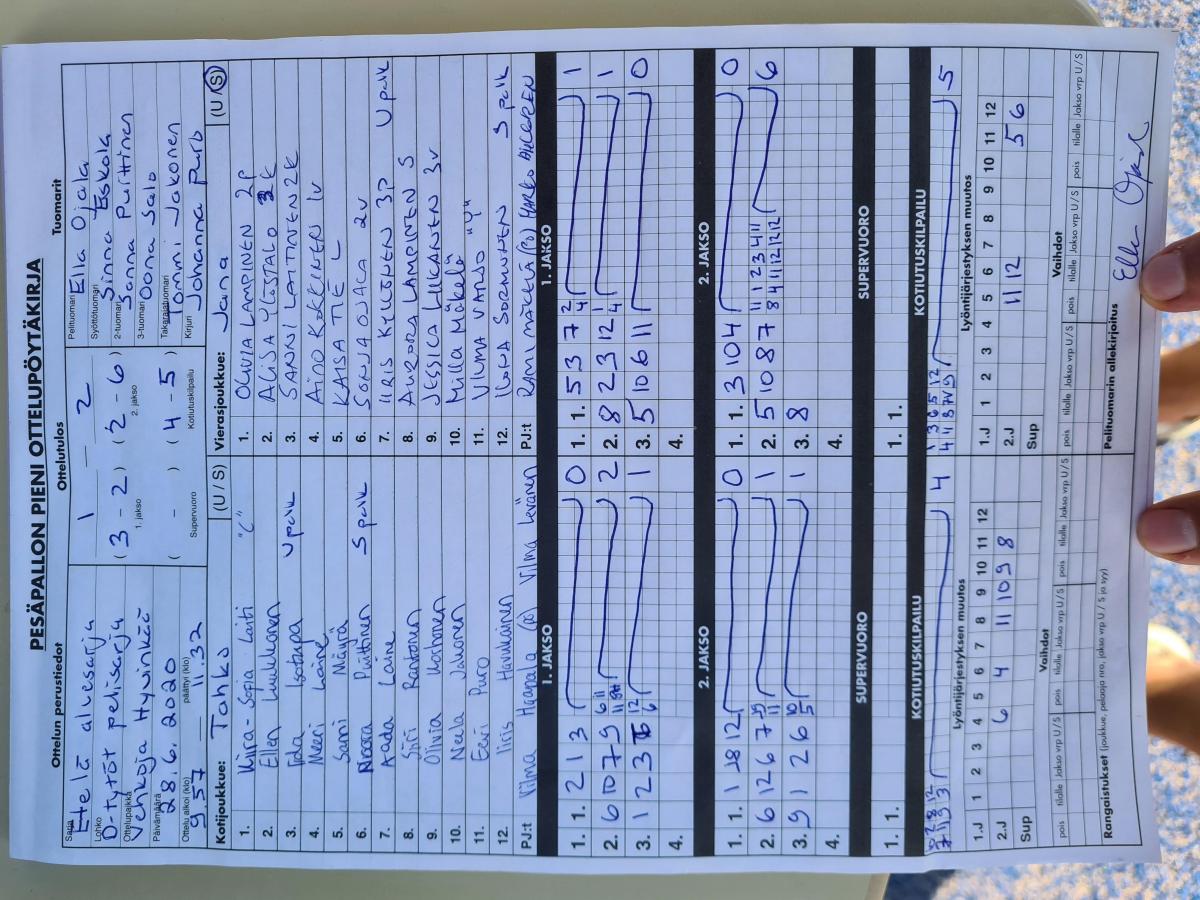 PESÄPALLON PIENI OTTELUPÖYTÄKIRJA
Ottelun perustiedot
Sarja
Etelä aluesarja
Lohko
D-tytöt pelisarja
Ottelupaikka
Vehkoja Hyvinkää
Päivämäärä
28.6.2020
Ottelu alkoi (klo)
9.57
päättyi (klo)
11.32
Ottelutulos
1 - 2
( 3 - 2 ) ( 2 - 6 )
1. jakso 2. jakso
( - ) ( 4 - 5 )
Supervuoro Kotiutuskilpailu
Tuomarit
Pelituomari Ella Ojala
Syöttötuomari Sinna Eskola
2-tuomari Sanna Puittinen
3-tuomari Oona Salo
Takarajatuomari Tommi Jakonen
Kirjuri Johanna Puro
Kotijoukkue: Tahko (U / S)
1. Kiira-Sofia Laiti "C"
2. Ellen Luukkonen
3. Iida Isotupa U palk
4. Neeri Laine
5. Sanni Mäyrä
6. Noora Puittinen S palk
7. Aada Laine
8. Siiri Rautonen
9. Olivia Uostonen
10. Neela Jakonen
11. Eevi Puro
12. Iiris Havulainen
PJ:t Vilma Haapala (P) Vilma Levänen
Vierasjoukkue: Jana (U / S)
1. OLIVIA LAMPINEN 2P
2. ALISA YLÖSTALO 3K
3. SANNI LAITINEN 2K
4. AINO KOKKONEN 1V
5. KAISA TIE L
6. SONJA OJALA 2V
7. IIRIS KYLLÖNEN 3P U palk
8. AURORA LAMPINEN S
9. JESSICA LIUKANEN 3V
10. Milla Mäkelä
11. VILMA VARJO "V"
12. ILONA SORMUNEN S palk
PJ:t RAMI MÄKELÄ (PJ) MARKO AHLGREN
1. JAKSO
1. 1. 2 1 3 0
2. 6 10 7 9 2
3. 1 2 3 1
4.
1. JAKSO
1. 1. 5 3 7 1
2. 8 2 3 12 1
3. 5 10 6 11 0
4.
2. JAKSO
1. 1. 1 8 12 0
2. 6 12 6 7 1
3. 9 1 2 6 1
4.
2. JAKSO
1. 1. 3 10 4 0
2. 5 10 8 7 6
3. 8
4.
SUPERVUORO
1. 1.
SUPERVUORO
1. 1.
KOTIUTUSKILPAILU
4
KOTIUTUSKILPAILU
5
Lyöntijärjestyksen muutos
1.J 1 2 3 4 5 6 7 8 9 10 11 12
2.J 6 4 11 10 9 8
Sup
Lyöntijärjestyksen muutos
1.J 1 2 3 4 5 6 7 8 9 10 11 12
2.J 11 12 5 6
Sup
Vaihdot
pois tilalle Jakso vrp U / S pois tilalle Jakso vrp U / S pois tilalle Jakso vrp U / S
Vaihdot
pois tilalle Jakso vrp U / S pois tilalle Jakso vrp U / S
Rangaistukset (joukkue, pelaaja nro, jakso vrp U / S ja syy)
Pelituomarin allekirjoitus
Ella Ojala